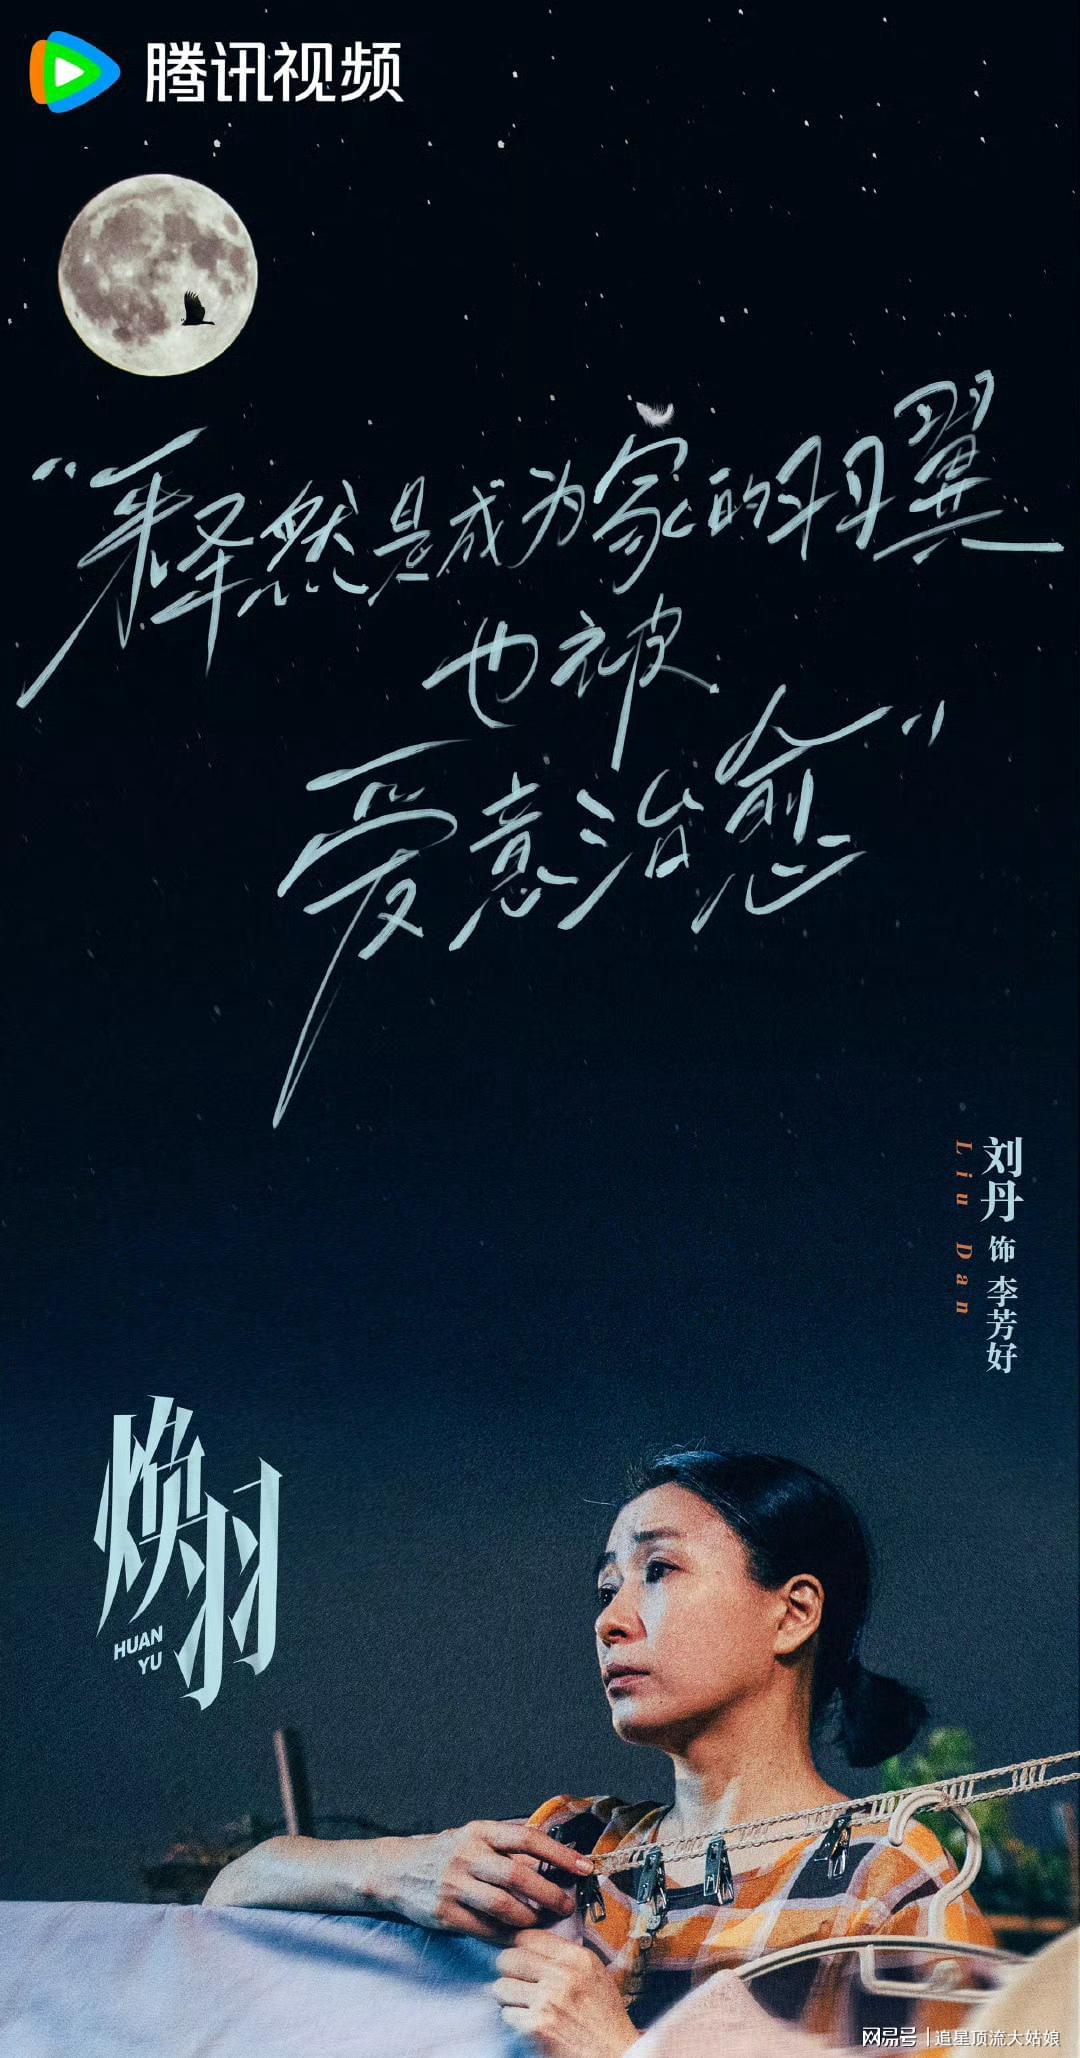 腾讯视频
“释然是成为家的羽翼
也被
爱意治愈”
刘丹 饰 李芳好
Liu Dan
焕羽
HUAN
YU
网易号 | 追星顶流大姑娘